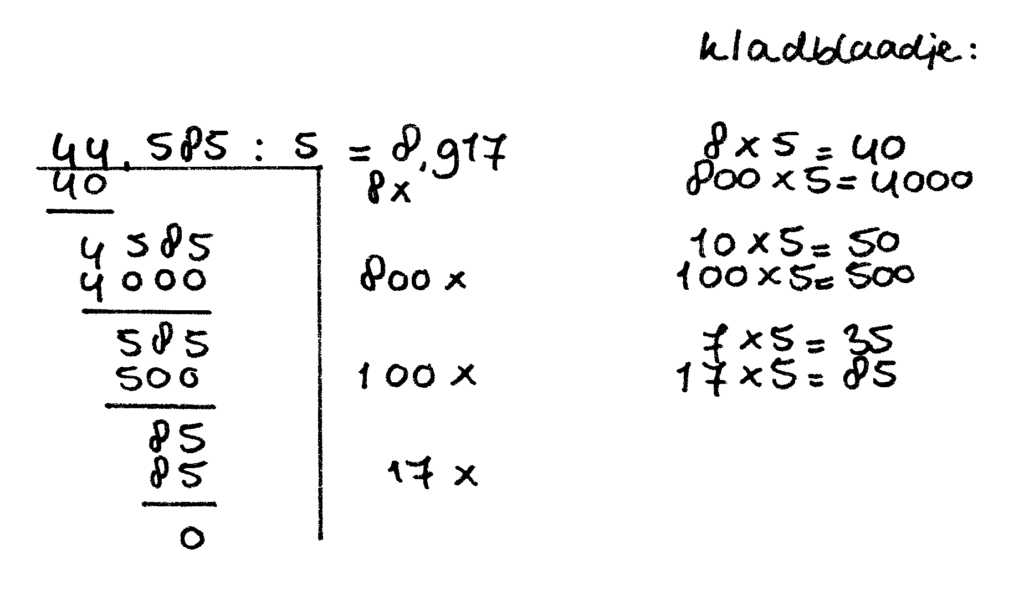 kladblaadje:
44.585 : 5 = 8.917
40 8x
4585
4000 800 x
585
500 100 x
85
85 17 x
0
8 x 5 = 40
800 x 5 = 4000
10 x 5 = 50
100 x 5 = 500
7 x 5 = 35
17 x 5 = 85